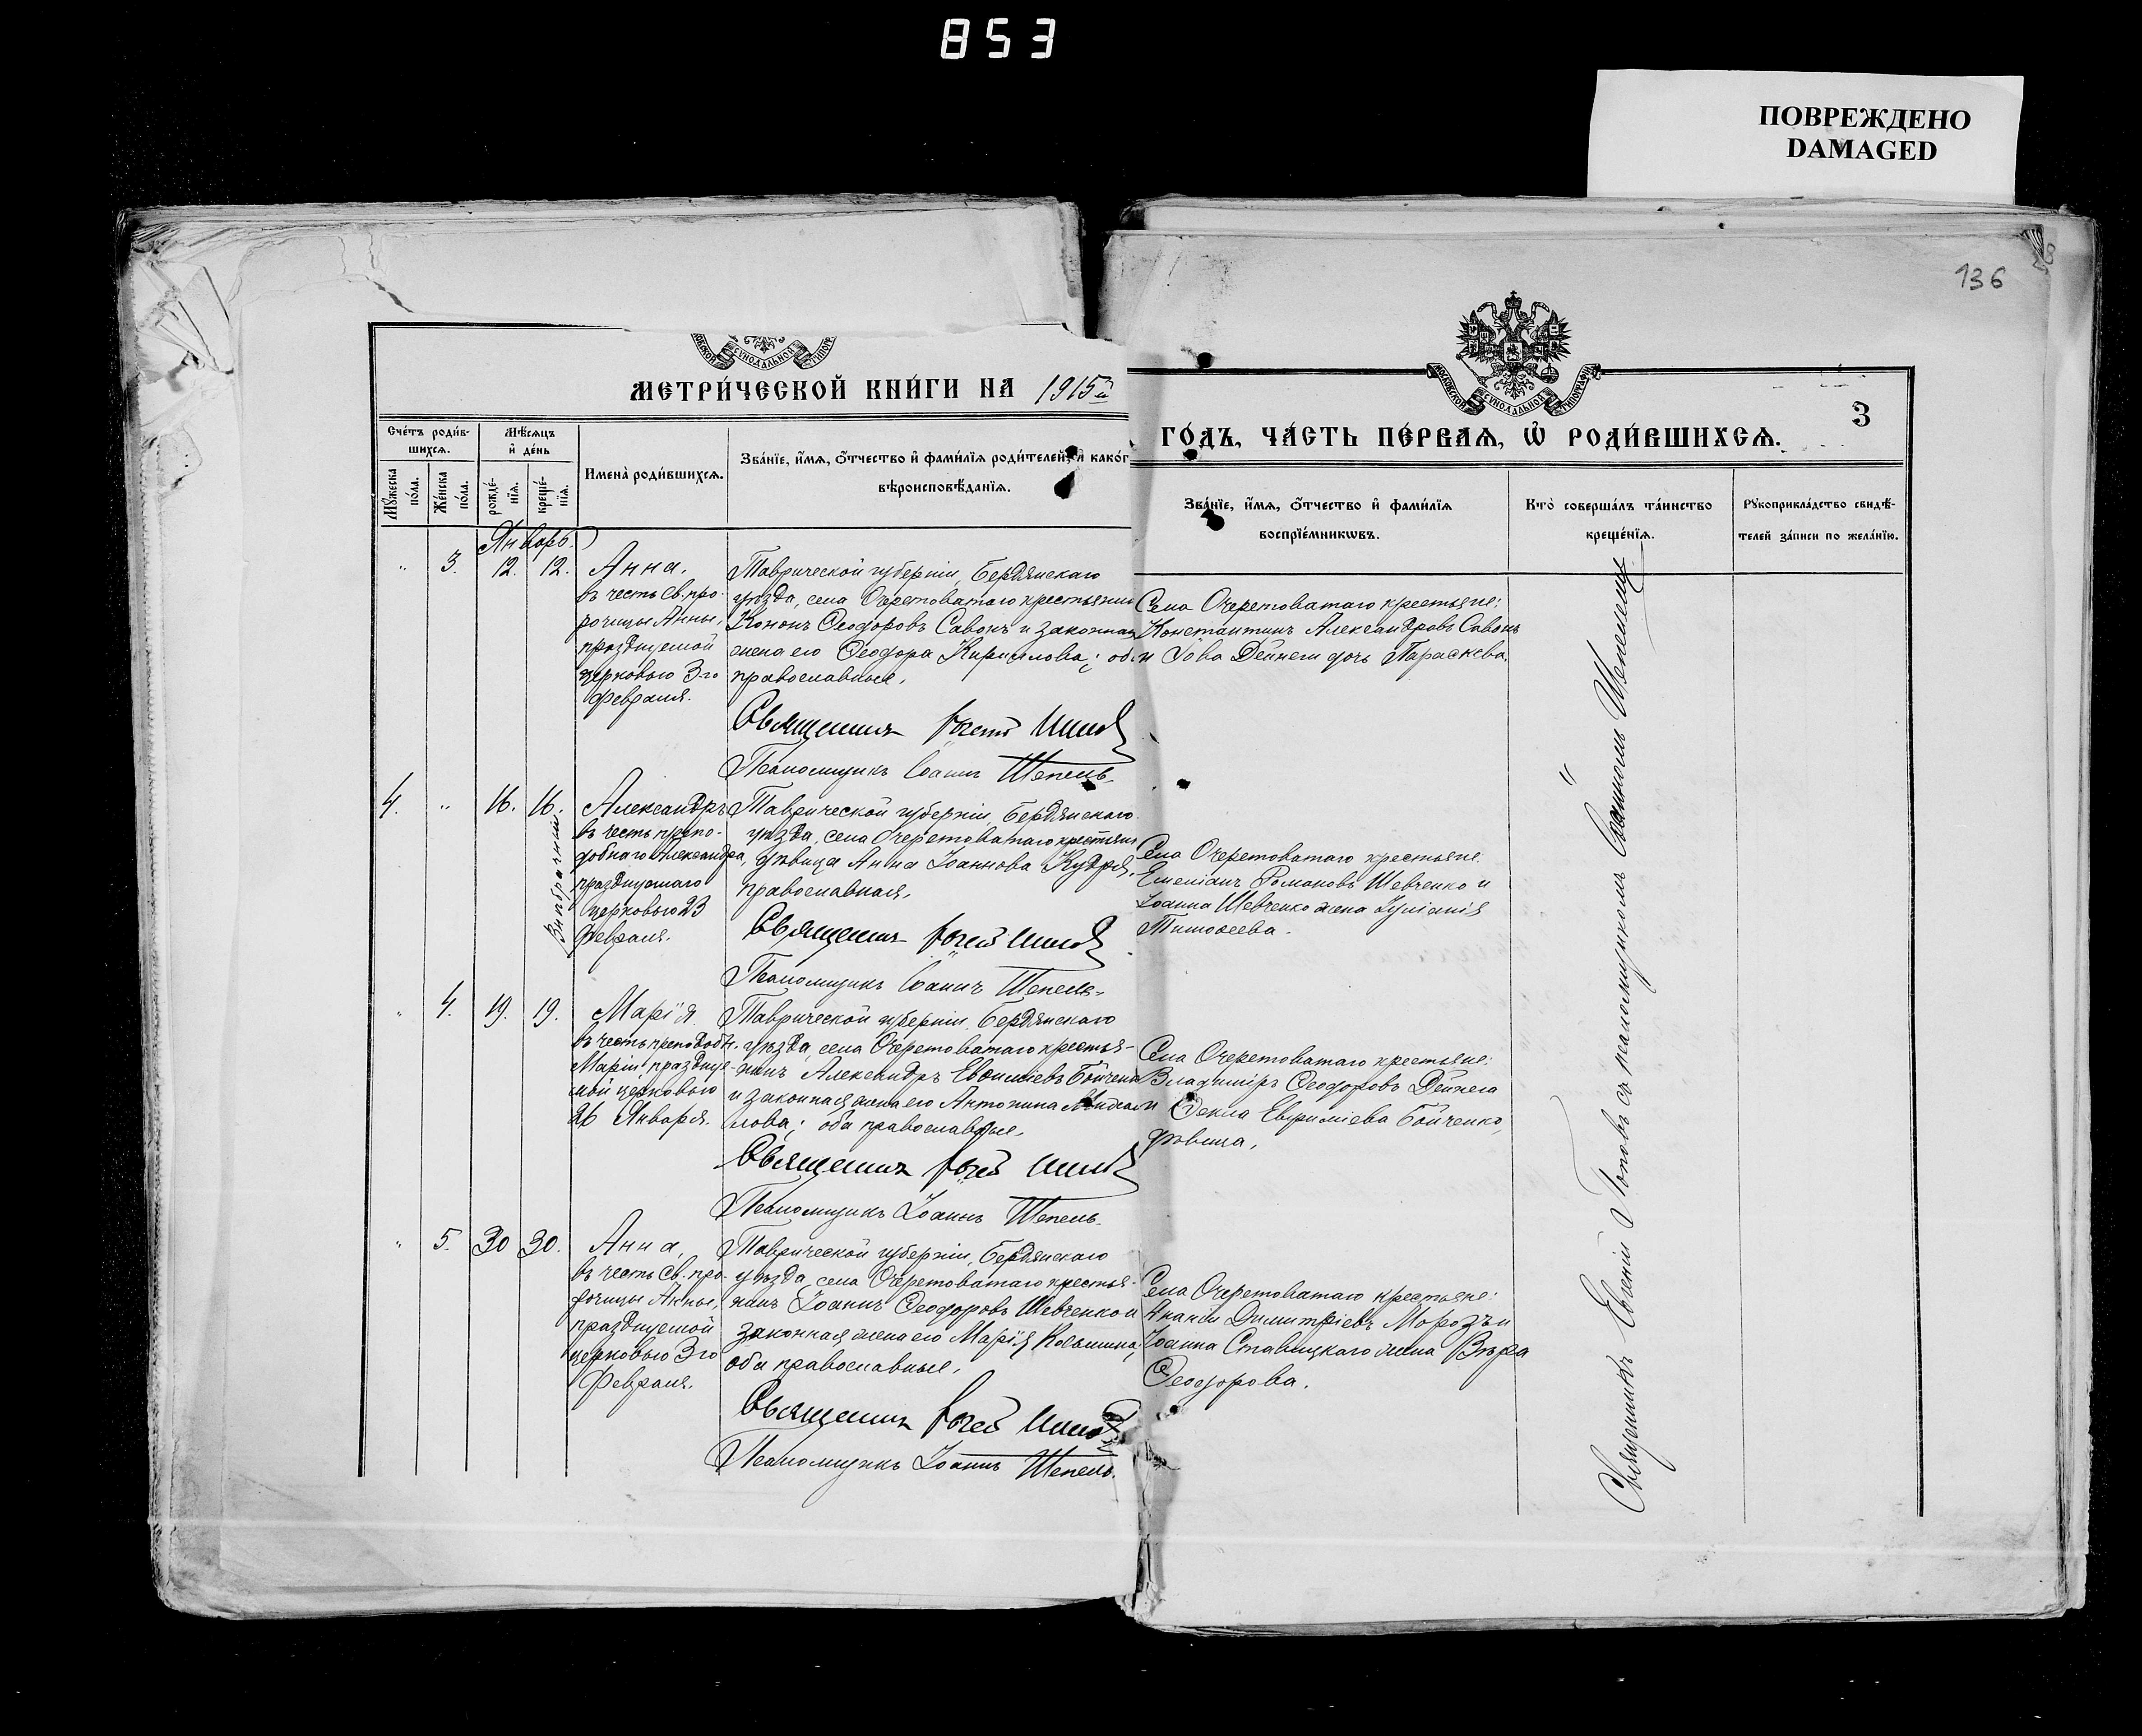 853
ПОВРЕЖДЕНО
DAMAGED
136
МЕТРИ́ЧЕСКОЙ КНИ́ГИ НА 1915й
ГО́ДЪ, ЧА́СТЬ ПЕ́РВАЯ, Ѡ҆ РОДИ́ВШИХСЯ.
3
Сче́тъ роди́в-
шихся.
Мѣ́сяцъ
и҆ де́нь
Мꙋ́жеска по́ла.
Же́нска по́ла.
рожде́-нїя.
креще́-нїя.
Имена̀ роди́вшихся.
Зва́нїе, и҆́мя, ѻ҆́тчество и҆ фами́лїя роди́телей, и҆ како́г
вѣроисповѣ́данїя.
Зва́нїе, и҆́мя, ѻ҆́тчество и҆ фами́лїя
воспрїе́мникѡвъ.
Кто̀ соверша́лъ та́инство
креще́нїя.
Рꙋкоприкла́дство свидѣ́-
телей за́писи по жела́нїю.
Январь.
" 3. 12. 12.
Анна,
въ честь св. про-
рочицы Анны,
празднуемой
церковью 3-го
февраля.
Таврической губерніи, Бердянскаго
уѣзда, села Очеретоватаго крестьянин
Кононъ Ѳеодоровъ Савонъ и законная
жена его Ѳеодора Кириллова; оба
православные.
Священник
Псаломщикъ Іоаннъ Шепель.
Села Очеретоватаго крестьяне:
Константинъ Александровъ Савонъ
и Іова Дейнеги дочь Параскева.
4. " 16. 16.
Внѣбрачный
Александръ
въ честь препо-
добнаго Александра,
празднуемаго
церковью 23
февраля.
Таврической губерніи, Бердянскаго
уѣзда, села Очеретоватаго крестьян
дѣвица Анна Іоаннова Кудря,
православная.
Священник
Псаломщикъ Іоаннъ Шепель.
Села Очеретоватаго крестьяне:
Емеліанъ Романовъ Шевченко и
Іоанна Шевченко жена Іуліанія
Тимоѳеева.
" 4. 19. 19.
Марія
въ честь преподобн.
Маріи, праздзуе-
мой церковью
26 Января.
Таврической губерніи, Бердянскаго
уѣзда, села Очеретоватаго крестья-
нинъ Александръ Евѳиміевъ Бойченко
и законная жена его Антонина Михаи
лова; оба православные.
Священник
Псаломщикъ Іоаннъ Шепель.
Села Очеретоватаго крестьяне:
Владиміръ Ѳеодоровъ Дейнега
и Ѳекла Евфиміева Бойченко,
дѣвица.
" 5. 30 30.
Анна,
въ честь св. про-
рочицы Анны,
празднуемой
церковью 3го
Февраля.
Таврической губерніи, Бердянскаго
уѣзда, села Очеретоватаго крестья-
нинъ Іоаннъ Ѳеодоровъ Шевченко и
законная жена его Марія
оба православные.
Священник
Псаломщикъ Іоаннъ Шепель.
Села Очеретоватаго крестьяне:
Ананій Димитріевъ Морозъ и
Іоанна Ставицкаго жена Вѣра
Ѳеодорова.
Священникъ Евгеній Поповъ съ псаломщикомъ Іоанномъ Шепелемъ.